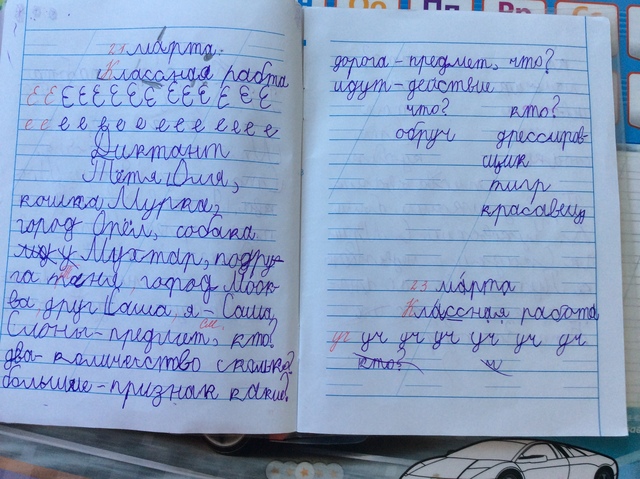 Оо Пп Рр Сс
21 марта.
Классная рабта
Е Е Е Е Е Е Е Е Е Е Е Е Е
е е е е е е е е е е е е е
Диктант
Тётя Оля,
кошка Мурка,
город Орёл, собака
Мухтар, подру-
га таня, город Моск-
ва, друг Саша, я - Саша,
см.
Слоны - предмет, кто?
два - количество сколько?
большие - признак какие?
дорога - предмет, что?
идут - действие
что? кто?
обруч дрессиров-
щик
тигр
красавец
23 марта
Классная работа
уч уч уч уч уч уч уч
кто? ч